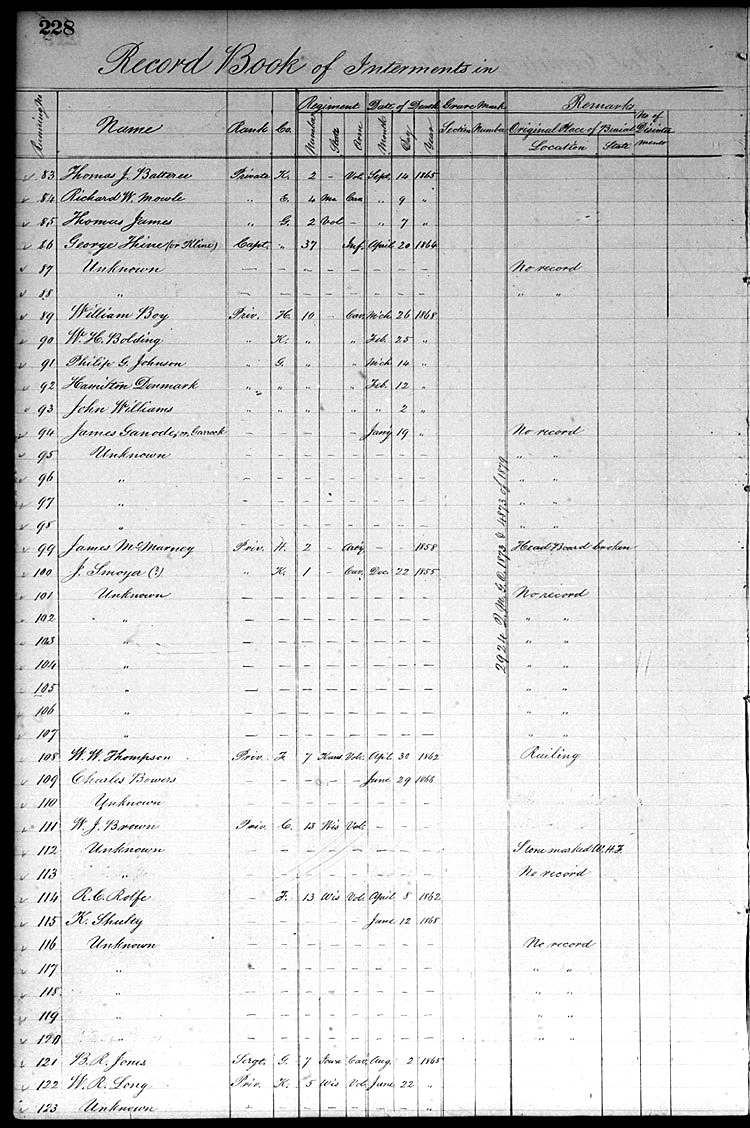 228
Record Book of Interments in
Running No Name Rank Co. Regiment Date of Death Grave Mark Remarks
Number State Arm Month Day Year Section Number Original Place of Burial No of Disinterments
Location State
83 Thomas J. Batteree Private K. 2 - Vol. Sept. 14 1865
84 Richard W. Mowle " E. 4 Mo Cav " 9 "
85 Thomas James " G. 2 Vol - " 7 "
86 George Thine (or Kline) Capt. " 37 Inf. April 20 1864
87 Unknown — — — — — — — — No record
88 " — — — — — — — — " "
89 William Boy Priv. H. 10 - Cav. Mch 26 1868
90 W. H. Bolding " K. " " Feb. 25 "
91 Philip G. Johnson " G. " " Mch 14 "
92 Hamilton Denmark " " " " Feb. 12 "
93 John Williams " " " " " 2 "
94 James Ganode, or, Garrock - - - - - Jany 19 " No record
95 Unknown — — — — — — — — " "
96 " — — — — — — — — " "
97 " — — — — — — — — " "
98 " — — — — — — — — " "
99 James McMarney Priv. H. 2 - Arty 1858 Head Board broken
100 J. Smoyer (?) " K. 1 - Cav. Dec. 22 1855
101 Unknown — — — — — — — — No record
102 " — — — — — — — — " "
103 " — — — — — — — — " "
104 " — — — — — — — — " "
105 " — — — — — — — — " "
106 " — — — — — — — — " "
107 " — — — — — — — — " "
108 W. W. Thompson Priv. F. 7 Kans Vol. April 1862 Railing
109 Charles Bowers — — — — — June 29 1866
110 Unknown — — — — — — — —
111 W. J. Brown Priv. C. 13 Wis Vol. — — —
112 Unknown — — — — — — — — Stone marked W.H.F.
113 " — — — — — — — — No record
114 R. C. Rolfe — F. 13 Wis Vol. April 8 1862
115 K. — — — — — June 12 1868
116 Unknown — — — — — — — — No record
117 " — — — — — — — — " "
118 " — — — — — — — — " "
119 " — — — — — — — — " "
120 " — — — — — — — — " "
121 B. R. Jones Sergt. G. 7 Iowa Cav. Aug. 2 1865
122 W. R. Long Priv. K. 5 Wis Vol. June 22 "
123 Unknown — — — — — — — "
2924 Q. M. G. O. 1873 & 4873 of 1879